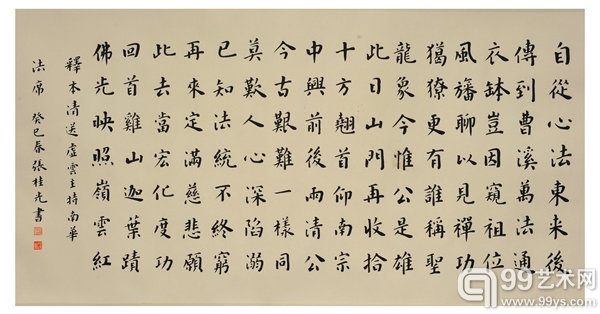 自從心法東来後
傳到曹溪萬法通
衣鉢豈因窺祖位
風旛聊以見禪功
獦獠更有誰稱聖
龍象今惟公是雄
此日山門再收拾
十方翹首仰南宗
中興前後兩清公
今古艱難一樣同
莫歎人心深陷溺
已知法統不終窮
再來定滿慈悲願
此去當宏化度功
回首雞山迦葉蹟
佛光映照嶺雲紅
釋本清送虛雲主持南華
法席 癸巳春張桂光書
99艺术网
www.99ys.com